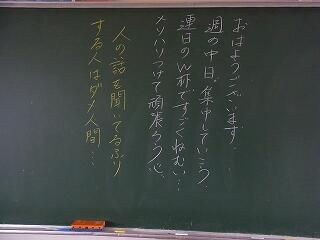 おはようございます。
週の中日。集中していこう。
連日のW杯ですごくねむい…
メリハリつけて頑張ろう心。
人の話を聞いてるふり
する人はダメ人間…